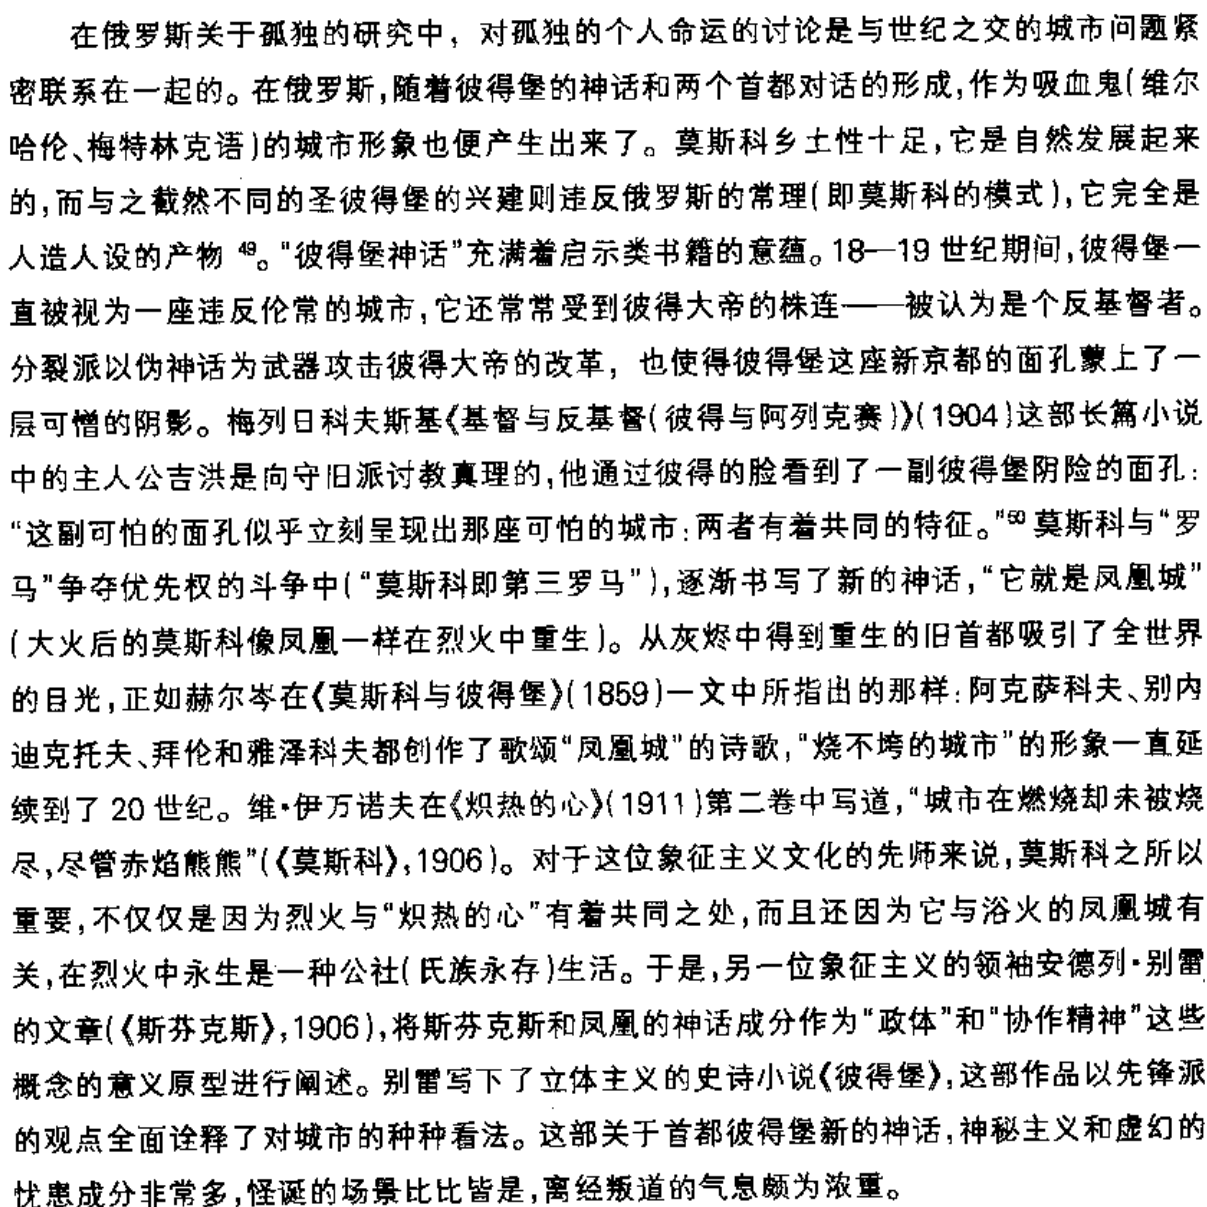 在俄罗斯关于孤独的研究中，对孤独的个人命运的讨论是与世纪之交的城市问题紧
密联系在一起的。在俄罗斯,随着彼得堡的神话和两个首都对话的形成,作为吸血鬼(维尔
哈伦、梅特林克语)的城市形象也便产生出来了。莫斯科乡土性十足,它是自然发展起来
的,而与之截然不同的圣彼得堡的兴建则违反俄罗斯的常理(即莫斯科的模式),它完全是
人造人设的产物 49。“彼得堡神话”充满着启示类书籍的意蕴。18—19 世纪期间,彼得堡一
直被视为一座违反伦常的城市,它还常常受到彼得大帝的株连——被认为是个反基督者。
分裂派以伪神话为武器攻击彼得大帝的改革，也使得彼得堡这座新京都的面孔蒙上了一
层可憎的阴影。梅列日科夫斯基《基督与反基督(彼得与阿列克赛)》(1904)这部长篇小说
中的主人公吉洪是向守旧派讨教真理的,他通过彼得的脸看到了一副彼得堡阴险的面孔:
“这副可怕的面孔似乎立刻呈现出那座可怕的城市:两者有着共同的特征。”50 莫斯科与“罗
马”争夺优先权的斗争中(“莫斯科即第三罗马”),逐渐书写了新的神话,“它就是凤凰城”
(大火后的莫斯科像凤凰一样在烈火中重生)。从灰烬中得到重生的旧首都吸引了全世界
的目光,正如赫尔岑在《莫斯科与彼得堡》(1859)一文中所指出的那样:阿克萨科夫、别内
迪克托夫、拜伦和雅泽科夫都创作了歌颂“凤凰城”的诗歌,“烧不垮的城市”的形象一直延
续到了 20 世纪。维·伊万诺夫在《炽热的心》(1911)第二卷中写道,“城市在燃烧却未被烧
尽,尽管赤焰熊熊”(《莫斯科》,1906)。对于这位象征主义文化的先师来说,莫斯科之所以
重要,不仅仅是因为烈火与“炽热的心”有着共同之处,而且还因为它与浴火的凤凰城有
关,在烈火中永生是一种公社(氏族永存)生活。于是,另一位象征主义的领袖安德列·别雷
的文章(《斯芬克斯》,1906),将斯芬克斯和凤凰的神话成分作为“政体”和“协作精神”这些
概念的意义原型进行阐述。别雷写下了立体主义的史诗小说《彼得堡》,这部作品以先锋派
的观点全面诠释了对城市的种种看法。这部关于首都彼得堡新的神话,神秘主义和虚幻的
忧患成分非常多,怪诞的场景比比皆是,离经叛道的气息颇为浓重。